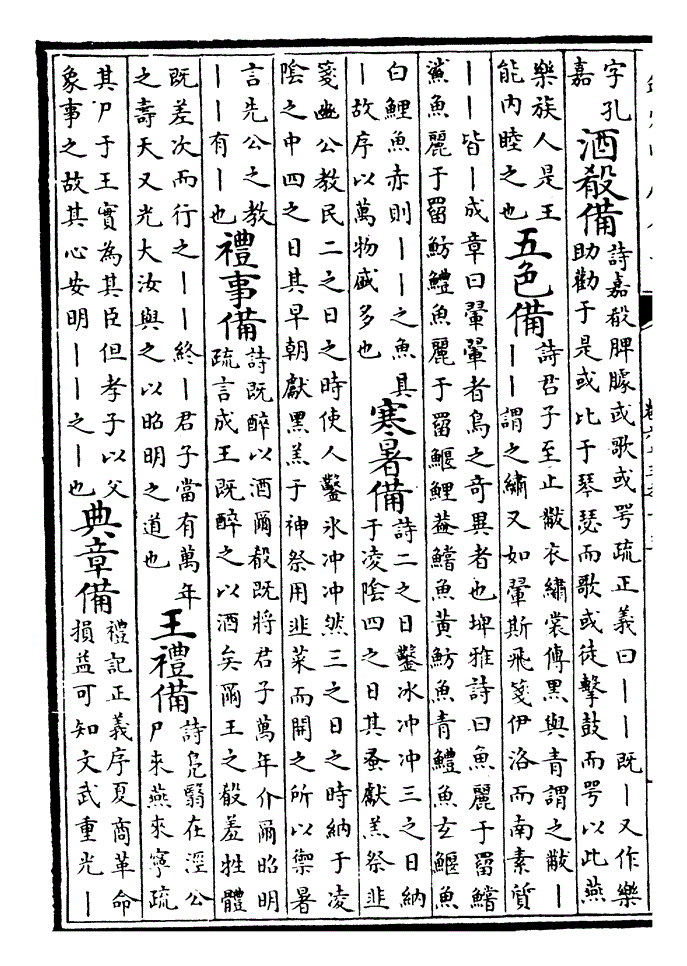 字孔
嘉
酒殽備
詩嘉殽脾臄或歌或咢疏正義曰丨丨既丨又作樂
助勸于是或比于琴瑟而歌或徒擊鼓而咢以此燕
樂族人是王
能内睦之也
五色備
詩君子至止黻衣繡裳傳黑與青謂之黻丨
丨丨謂之繡又如翬斯飛箋伊洛而南素質
丨丨皆丨成章曰翬翬者鳥之奇異者也埤雅詩曰魚麗于罶鱨
鯊魚麗于罶魴鱧魚麗于罶鰋鯉葢鱨魚黄魴魚青鱧魚玄鰋魚
白鯉魚赤則丨丨之魚具
丨故序以萬物盛多也
寒暑備
詩二之日鑿冰冲冲三之日納
于凌陰四之日其蚤獻羔祭韭
箋豳公教民二之日之時使人鑿氷冲冲然三之日之時納于凌
陰之中四之日其早朝獻黑羔于神祭用韭菜而開之所以禦暑
言先公之教
丨丨有丨也
禮事備
詩既醉以酒爾殽既將君子萬年介爾昭明
疏言成王既醉之以酒矣爾王之殽羞牲體
既差次而行之丨丨終丨君子當有萬年
之壽天又光大汝與之以昭明之道也
王禮備
詩鳬鷖在涇公
尸來燕來寧疏
其尸于王實為其臣但孝子以父
象事之故其心安明丨丨之丨也
典章備
禮記正義序夏商革命
損益可知文武重光丨